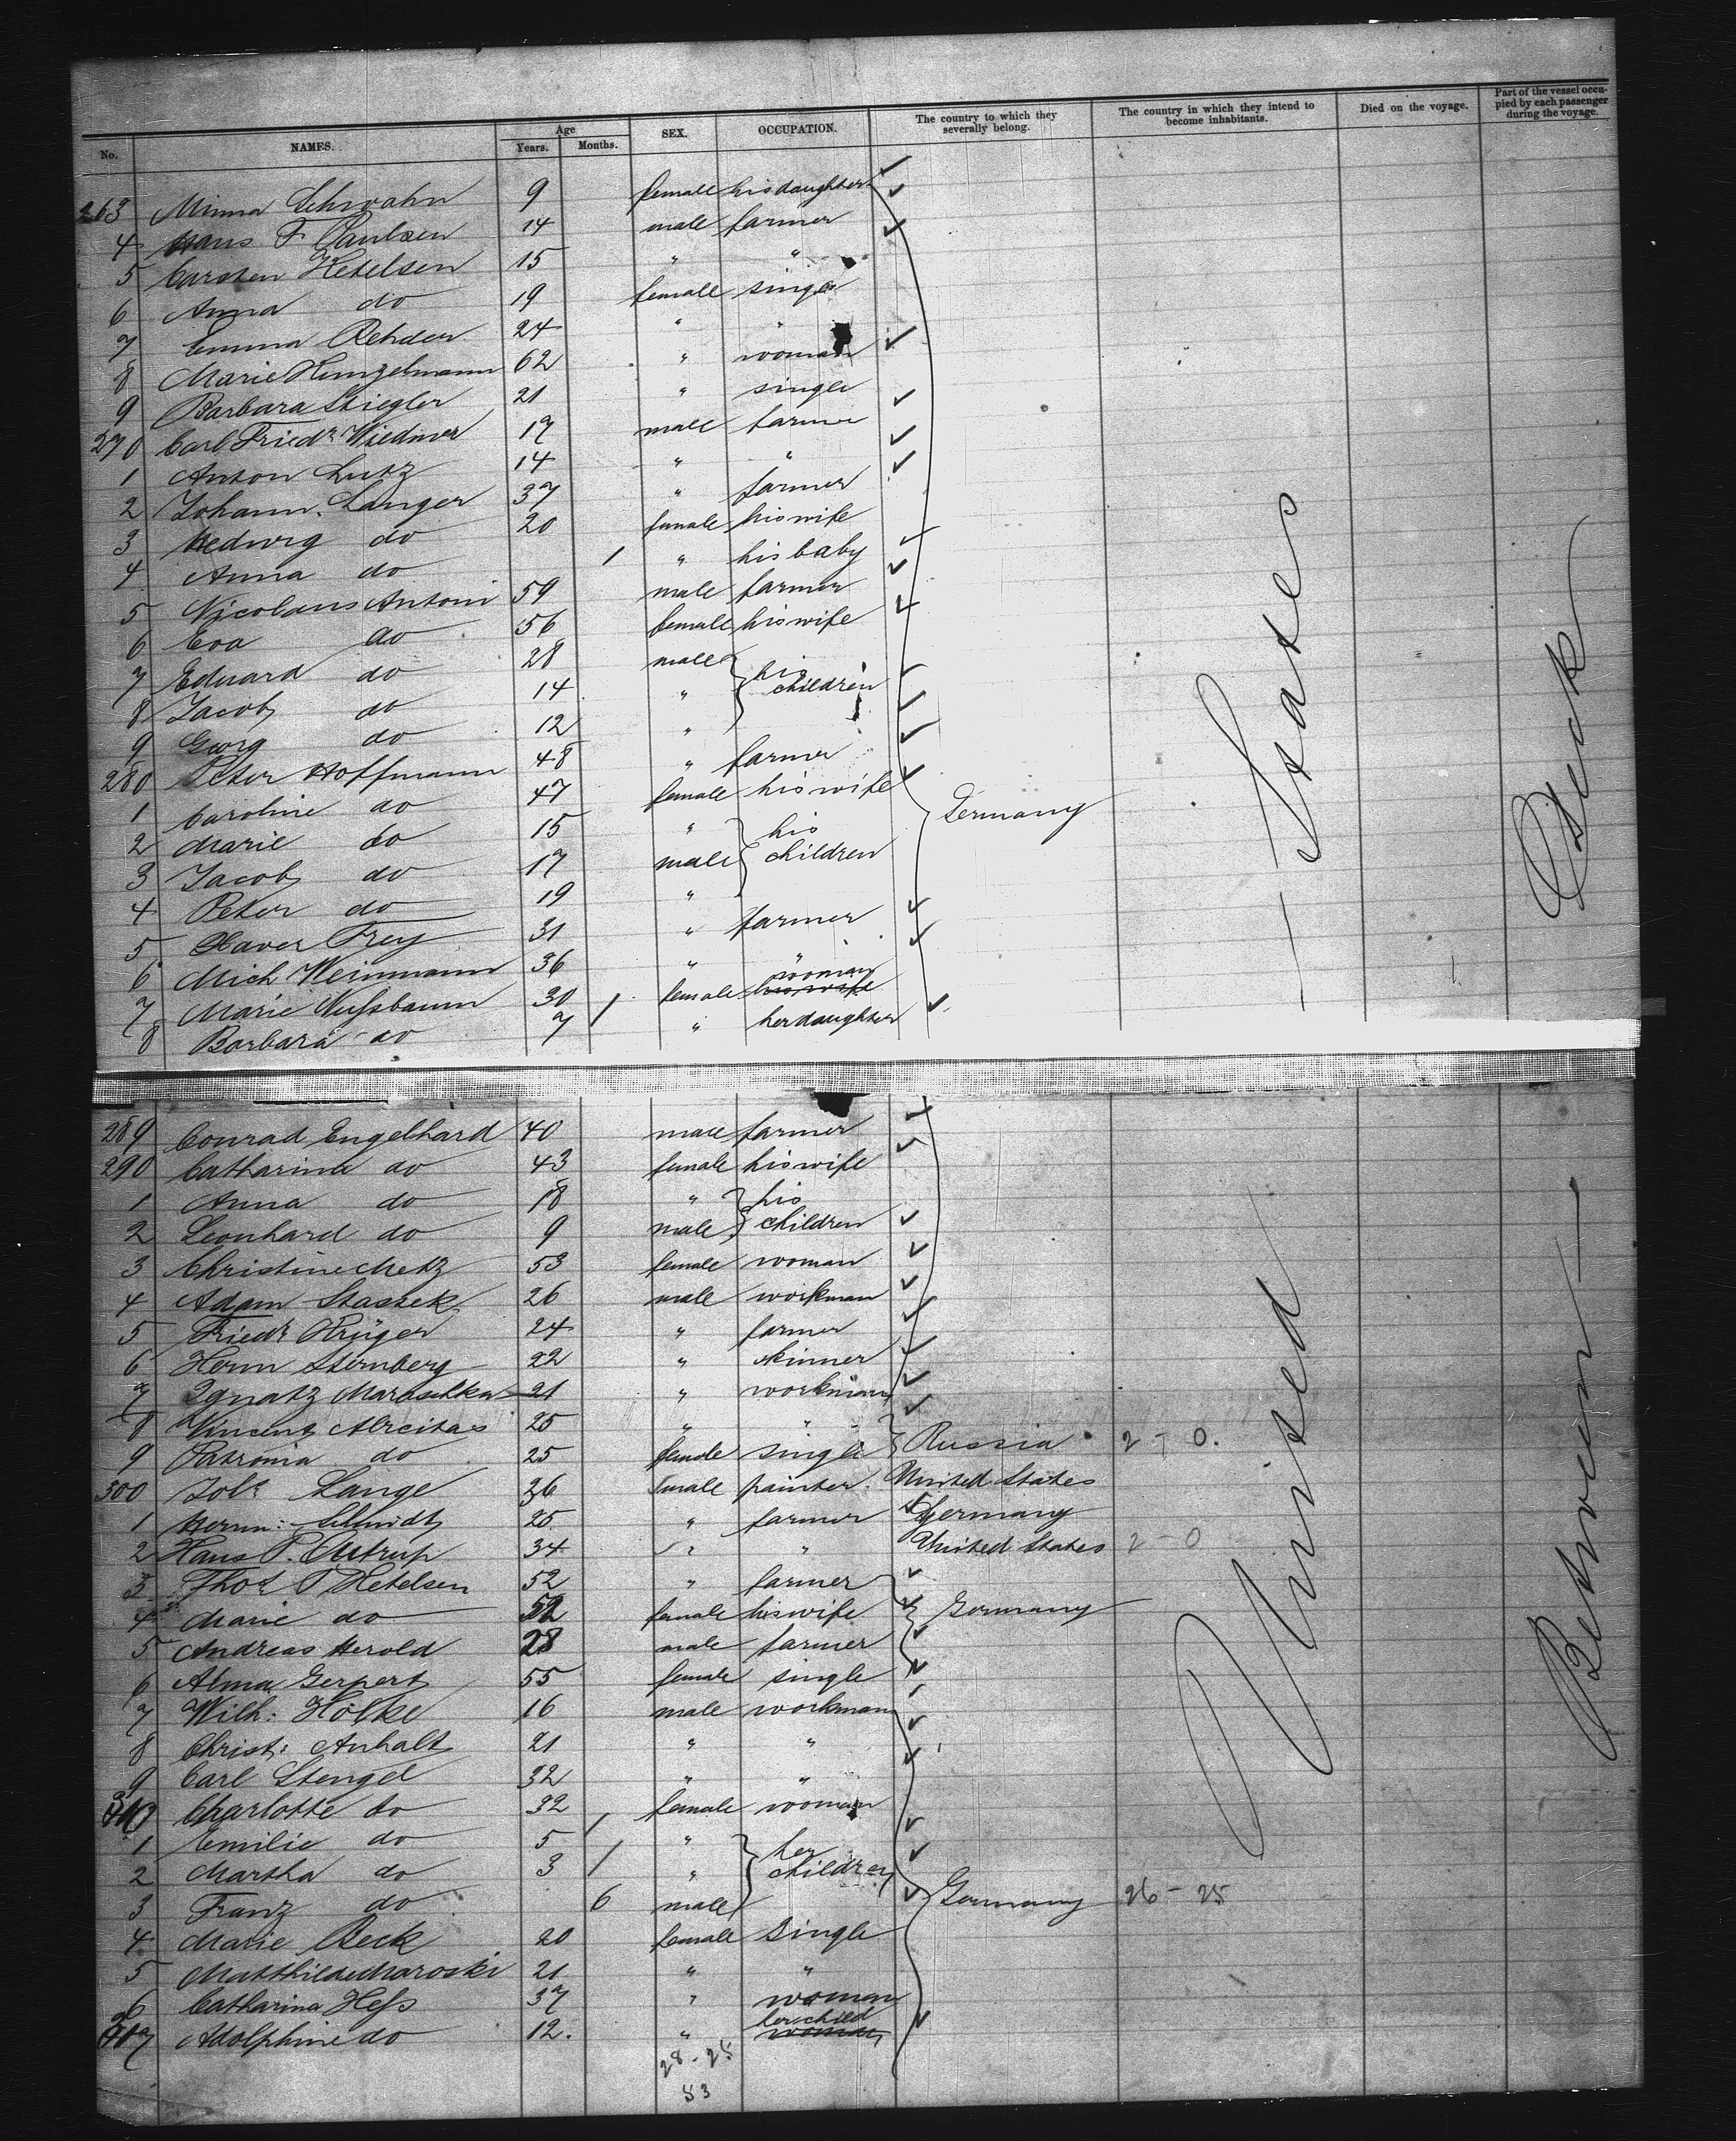 No. NAMES. Age Years. Months. SEX. OCCUPATION. The country to which they severally belong. The country in which they intend to become inhabitants. Died on the voyage. Part of the vessel occupied by each passenger during the voyage.
263 Minna Schwahn 9 female his daughter
4 Hans F Paulsen 14 male farmer
5 Carsten Ketelsen 15 " "
6 Anna do 19 female single
7 Emma Rehder 24 " "
8 Marie Hinzelmann 62 " woman
9 Barbara Stiegler 21 " single
270 Carl Friedr Wiedmer 17 male farmer
1 Anton Lutz 14 " "
2 Johann Langer 37 " farmer
3 Hedwig do 20 female his wife
4 Anna do 1 " his baby
5 Nicolaus Antoni 59 male farmer
6 Eva do 56 female his wife
7 Eduard do 28 male his children
8 Jacob do 14 "
9 Georg do 12 "
280 Peter Hoffmann 48 " farmer
1 Caroline do 47 female his wife Germany States Deck
2 Marie do 15 " his children
3 Jacob do 17 male
4 Peter do 19 "
5 Xaver Frey 31 " farmer
6 Mich Weinmann 36 " "
7 Marie Nußbaum 30 female his wife woman
8 Barbara do 7 " her daughter
289 Conrad Engelhard 40 male farmer
290 Catharina do 43 female his wife
1 Anna do 18 " his children
2 Leonhard do 9 male
3 Christine Metz 53 female woman
4 Adam Staszek 26 male workman
5 Friedr Krüger 24 " farmer
6 Herm Sternberg 22 " skinner
7 Ignatz Maraschka 21 " workman
8 Vincent 25 " "
9 Patronia do 25 female single Russia 2-0.
300 Joh: Lange 36 male painter United States
1 Herm: Schmidt 25 " farmer Germany
2 Hans P. 34 " " United States 2-0 United
3 P Ketelsen 52 " farmer
4 Marie do 52 female his wife Germany Between
5 Andreas Herold 28 male farmer
6 Alma Gerpert 55 female single
7 Wilh: Hölke 16 male workman
8 Christ: Anhalt 21 " "
9 Carl Stengel 32 " "
310 Charlotte do 32 female woman
1 Emilie do 5 " her children
2 Martha do 3 "
3 Franz do 6 male Germany 26-25
4 Marie Beck 20 female single
5 Matthilde Maroski 21 " "
6 Catharina Heß 37 " woman
317 Adolphine do 12. " woman her child
28-25
53